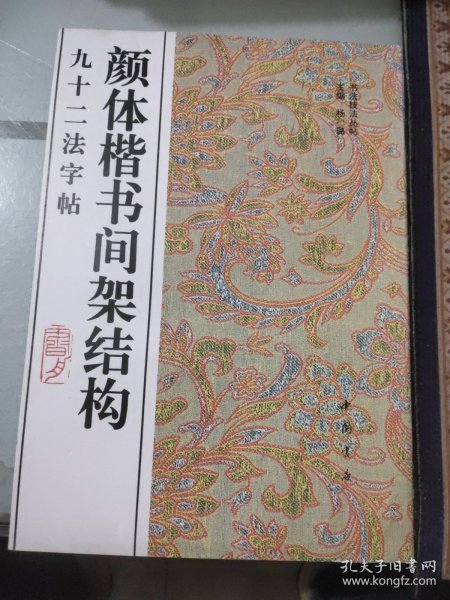 颜体楷书间架结构
九十二法字帖
书法技法丛帖
主编 杨璐
中国书店
孔夫子旧书网
www.kongfz.com